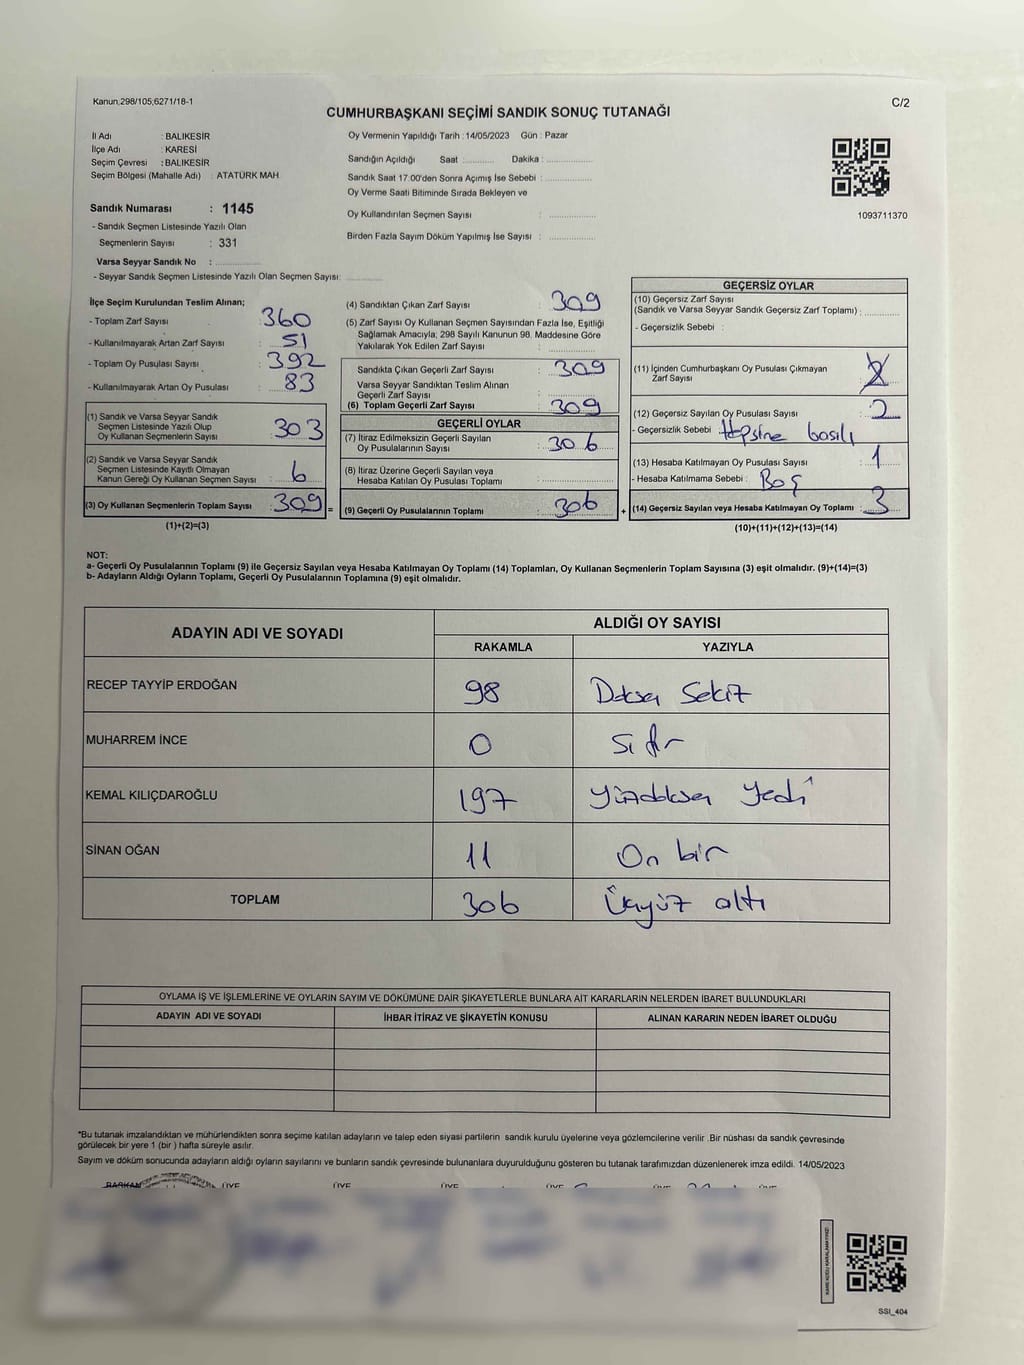 Kanun,298/105,6271/18-1
C/2
CUMHURBAŞKANI SEÇİMİ SANDIK SONUÇ TUTANAĞI
İl Adı : BALIKESİR
İlçe Adı : KARESİ
Seçim Çevresi : BALIKESİR
Seçim Bölgesi (Mahalle Adı) : ATATÜRK MAH
Oy Vermenin Yapıldığı Tarih : 14/05/2023 Gün : Pazar
Sandığın Açıldığı Saat : Dakika :
Sandık Saat 17.00'den Sonra Açımış İse Sebebi :
Oy Verme Saati Bitiminde Sırada Bekleyen ve
Oy Kullandırılan Seçmen Sayısı :
Birden Fazla Sayım Döküm Yapılmış İse Sayısı :
1093711370
Sandık Numarası : 1145
- Sandık Seçmen Listesinde Yazılı Olan
Seçmenlerin Sayısı : 331
Varsa Seyyar Sandık No :
- Seyyar Sandık Seçmen Listesinde Yazılı Olan Seçmen Sayısı:
İlçe Seçim Kurulundan Teslim Alınan;
- Toplam Zarf Sayısı : 360
- Kullanılmayarak Artan Zarf Sayısı : 51
- Toplam Oy Pusulası Sayısı : 392
- Kullanılmayarak Artan Oy Pusulası : 83
(1) Sandık ve Varsa Seyyar Sandık
Seçmen Listesinde Yazılı Olup
Oy Kullanan Seçmenlerin Sayısı : 303
(2) Sandık ve Varsa Seyyar Sandık
Seçmen Listesinde Kayıtlı Olmayan
Kanun Gereği Oy Kullanan Seçmen Sayısı : 6
(3) Oy Kullanan Seçmenlerin Toplam Sayısı : 309 =
(1)+(2)=(3)
(4) Sandıktan Çıkan Zarf Sayısı : 309
(5) Zarf Sayısı Oy Kullanan Seçmen Sayısından Fazla İse, Eşitliği
Sağlamak Amacıyla; 298 Sayılı Kanunun 98. Maddesine Göre
Yakılarak Yok Edilen Zarf Sayısı :
Sandıkta Çıkan Geçerli Zarf Sayısı : 309
Varsa Seyyar Sandıktan Teslim Alınan
Geçerli Zarf Sayısı :
(6) Toplam Geçerli Zarf Sayısı : 309
GEÇERLİ OYLAR
(7) İtiraz Edilmeksizin Geçerli Sayılan
Oy Pusulalarının Sayısı : 306
(8) İtiraz Üzerine Geçerli Sayılan veya
Hesaba Katılan Oy Pusulası Toplamı :
(9) Geçerli Oy Pusulalarının Toplamı : 306 +
GEÇERSİZ OYLAR
(10) Geçersiz Zarf Sayısı
(Sandık ve Varsa Seyyar Sandık Geçersiz Zarf Toplamı) :
- Geçersizlik Sebebi :
(11) İçinden Cumhurbaşkanı Oy Pusulası Çıkmayan
Zarf Sayısı :
(12) Geçersiz Sayılan Oy Pusulası Sayısı : 2
- Geçersizlik Sebebi : Hepsine basılı
(13) Hesaba Katılmayan Oy Pusulası Sayısı : 1
- Hesaba Katılmama Sebebi : Boş
(14) Geçersiz Sayılan veya Hesaba Katılmayan Oy Toplamı : 3
(10)+(11)+(12)+(13)=(14)
NOT:
a- Geçerli Oy Pusulalarının Toplamı (9) ile Geçersiz Sayılan veya Hesaba Katılmayan Oy Toplamı (14) Toplamları, Oy Kullanan Seçmenlerin Toplam Sayısına (3) eşit olmalıdır. (9)+(14)=(3)
b- Adayların Aldığı Oyların Toplamı, Geçerli Oy Pusulalarının Toplamına (9) eşit olmalıdır.
ADAYIN ADI VE SOYADI
ALDIĞI OY SAYISI
RAKAMLA YAZIYLA
RECEP TAYYİP ERDOĞAN 98 Doksan Sekiz
MUHARREM İNCE 0 Sıfır
KEMAL KILIÇDAROĞLU 197 Yüzdoksan Yedi
SİNAN OĞAN 11 On bir
TOPLAM 306 Üçyüz altı
OYLAMA İŞ VE İŞLEMLERİNE VE OYLARIN SAYIM VE DÖKÜMÜNE DAİR ŞİKAYETLERLE BUNLARA AİT KARARLARIN NELERDEN İBARET BULUNDUKLARI
ADAYIN ADI VE SOYADI İHBAR İTİRAZ VE ŞİKAYETİN KONUSU ALINAN KARARIN NEDEN İBARET OLDUĞU
*Bu tutanak imzalandıktan ve mühürlendikten sonra seçime katılan adayların ve talep eden siyasi partilerin sandık kurulu üyelerine veya gözlemcilerine verilir .Bir nüshası da sandık çevresinde
görülecek bir yere 1 (bir ) hafta süreyle asılır.
Sayım ve döküm sonucunda adayların aldığı oyların sayılarını ve bunların sandık çevresinde bulunanlara duyurulduğunu gösteren bu tutanak tarafımızdan düzenlenerek imza edildi. 14/05/2023
BAŞKAN ÜYE ÜYE ÜYE ÜYE ÜYE ÜYE
SSI_404